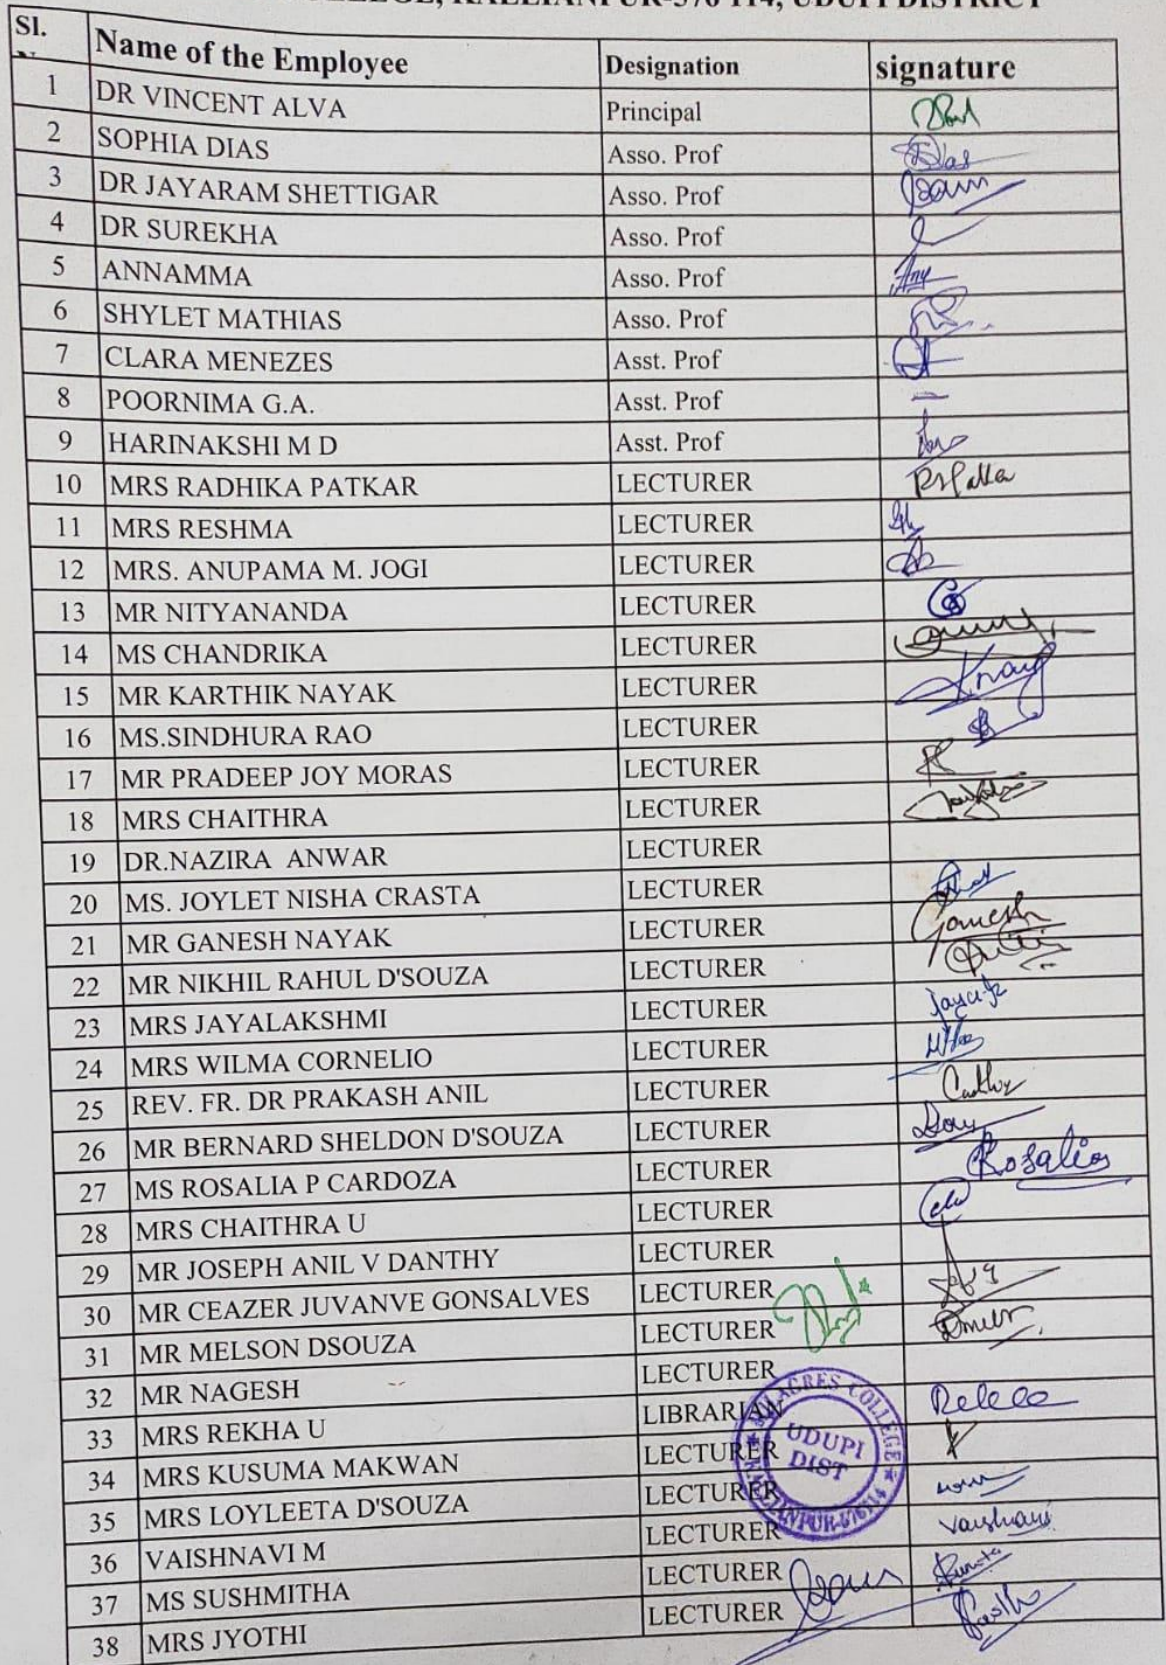 COLLEGE, KALLIANPUR-576 114, UDUPI DISTRICT
Sl. Name of the Employee Designation signature
1 DR VINCENT ALVA Principal
2 SOPHIA DIAS Asso. Prof
3 DR JAYARAM SHETTIGAR Asso. Prof
4 DR SUREKHA Asso. Prof
5 ANNAMMA Asso. Prof
6 SHYLET MATHIAS Asso. Prof
7 CLARA MENEZES Asst. Prof
8 POORNIMA G.A. Asst. Prof
9 HARINAKSHI M D Asst. Prof
10 MRS RADHIKA PATKAR LECTURER
11 MRS RESHMA LECTURER
12 MRS. ANUPAMA M. JOGI LECTURER
13 MR NITYANANDA LECTURER
14 MS CHANDRIKA LECTURER
15 MR KARTHIK NAYAK LECTURER
16 MS.SINDHURA RAO LECTURER
17 MR PRADEEP JOY MORAS LECTURER
18 MRS CHAITHRA LECTURER
19 DR.NAZIRA ANWAR LECTURER
20 MS. JOYLET NISHA CRASTA LECTURER
21 MR GANESH NAYAK LECTURER Ganesh
22 MR NIKHIL RAHUL D'SOUZA LECTURER
23 MRS JAYALAKSHMI LECTURER
24 MRS WILMA CORNELIO LECTURER
25 REV. FR. DR PRAKASH ANIL LECTURER
26 MR BERNARD SHELDON D'SOUZA LECTURER
27 MS ROSALIA P CARDOZA LECTURER Rosalia
28 MRS CHAITHRA U LECTURER
29 MR JOSEPH ANIL V DANTHY LECTURER
30 MR CEAZER JUVANVE GONSALVES LECTURER
31 MR MELSON DSOUZA LECTURER
32 MR NAGESH LECTURER
33 MRS REKHA U LIBRARIAN
34 MRS KUSUMA MAKWAN LECTURER
35 MRS LOYLEETA D'SOUZA LECTURER
36 VAISHNAVI M LECTURER Vaishnavi
37 MS SUSHMITHA LECTURER
38 MRS JYOTHI LECTURER
MILAGRES COLLEGE
UDUPI
DIST
KALLIANPUR-576114